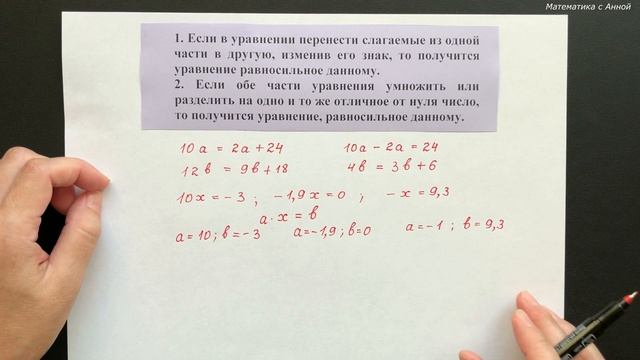 Математика с Анной
1. Если в уравнении перенести слагаемые из одной
части в другую, изменив его знак, то получится
уравнение равносильное данному.
2. Если обе части уравнения умножить или
разделить на одно и то же отличное от нуля число,
то получится уравнение, равносильное данному.
10a = 2a + 24 10a - 2a = 24
12в = 9в + 18 4в = 3в + 6
10x = -3 ; -1,9x = 0 ; -x = 9,3
a·x = в
a = 10; в = -3 a = -1,9; в = 0 a = -1 ; в = 9,3